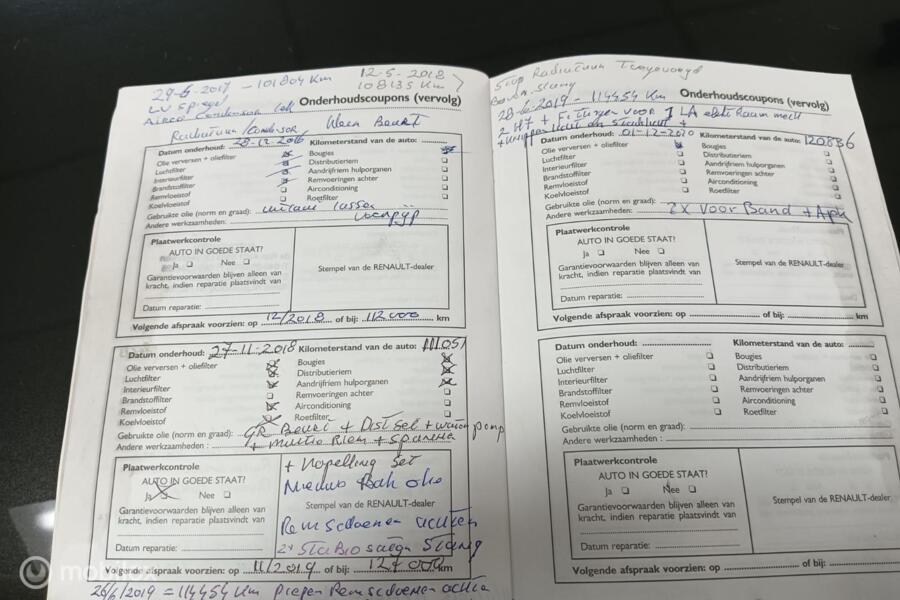 29-6-2017 - 101804 Km
12-5-2018
108135 Km
LV Spiegel
Airco Condensor
Onderhoudscoupons (vervolg)
Radiateur/Condensor
Klein Beurt
Datum onderhoud: 29-12-2016 Kilometerstand van de auto:
Olie verversen + oliefilter
Bougies
Luchtfilter
Distributieriem
Interieurfilter
Aandrijfriem hulporganen
Brandstoffilter
Remvoeringen achter
Remvloeistof
Airconditioning
Koelvloeistof
Roetfilter
Gebruikte olie (norm en graad):
Andere werkzaamheden:
Plaatwerkcontrole
AUTO IN GOEDE STAAT?
Ja Nee
Garantievoorwaarden blijven alleen van
kracht, indien reparatie plaatsvindt van
Stempel van de RENAULT-dealer
Datum reparatie:
Volgende afspraak voorzien: op 12/2018 of bij: 112000 km
Datum onderhoud: 27-11-2018 Kilometerstand van de auto: 111051
Olie verversen + oliefilter
Bougies
Luchtfilter
Distributieriem
Interieurfilter
Aandrijfriem hulporganen
Brandstoffilter
Remvoeringen achter
Remvloeistof
Airconditioning
Koelvloeistof
Roetfilter
Gebruikte olie (norm en graad): GR Beurt + Dist Set + water pomp
Andere werkzaamheden: + Multie Riem + spanner
Plaatwerkcontrole
AUTO IN GOEDE STAAT?
Ja Nee
Garantievoorwaarden blijven alleen van
kracht, indien reparatie plaatsvindt van
+ Kopelling Set
Nieuwe Bak olie
Stempel van de RENAULT-dealer
Remschoenen achter
2x Stabiosaten Stang
Datum reparatie:
Volgende afspraak voorzien: op 11/2019 of bij: 127000 km
26/6/2019 = 114454 Km Remschoenen
Stop Radiateur Toegevoegd
28-6-2019 - 114454 Km
Onderhoudscoupons (vervolg)
2 H7 + voor 1 LA Raam
Datum onderhoud: 01-12-2020 Kilometerstand van de auto: 120836
Olie verversen + oliefilter
Bougies
Luchtfilter
Distributieriem
Interieurfilter
Aandrijfriem hulporganen
Brandstoffilter
Remvoeringen achter
Remvloeistof
Airconditioning
Koelvloeistof
Roetfilter
Gebruikte olie (norm en graad):
Andere werkzaamheden: 2x Voor Band + Apk
Plaatwerkcontrole
AUTO IN GOEDE STAAT?
Ja Nee
Garantievoorwaarden blijven alleen van
kracht, indien reparatie plaatsvindt van
Stempel van de RENAULT-dealer
Datum reparatie:
Volgende afspraak voorzien: op of bij: km
Datum onderhoud: Kilometerstand van de auto:
Olie verversen + oliefilter
Bougies
Luchtfilter
Distributieriem
Interieurfilter
Aandrijfriem hulporganen
Brandstoffilter
Remvoeringen achter
Remvloeistof
Airconditioning
Koelvloeistof
Roetfilter
Gebruikte olie (norm en graad):
Andere werkzaamheden:
Plaatwerkcontrole
AUTO IN GOEDE STAAT?
Ja Nee
Garantievoorwaarden blijven alleen van
kracht, indien reparatie plaatsvindt van
Stempel van de RENAULT-dealer
Datum reparatie:
Volgende afspraak voorzien: op of bij: km
mobilox